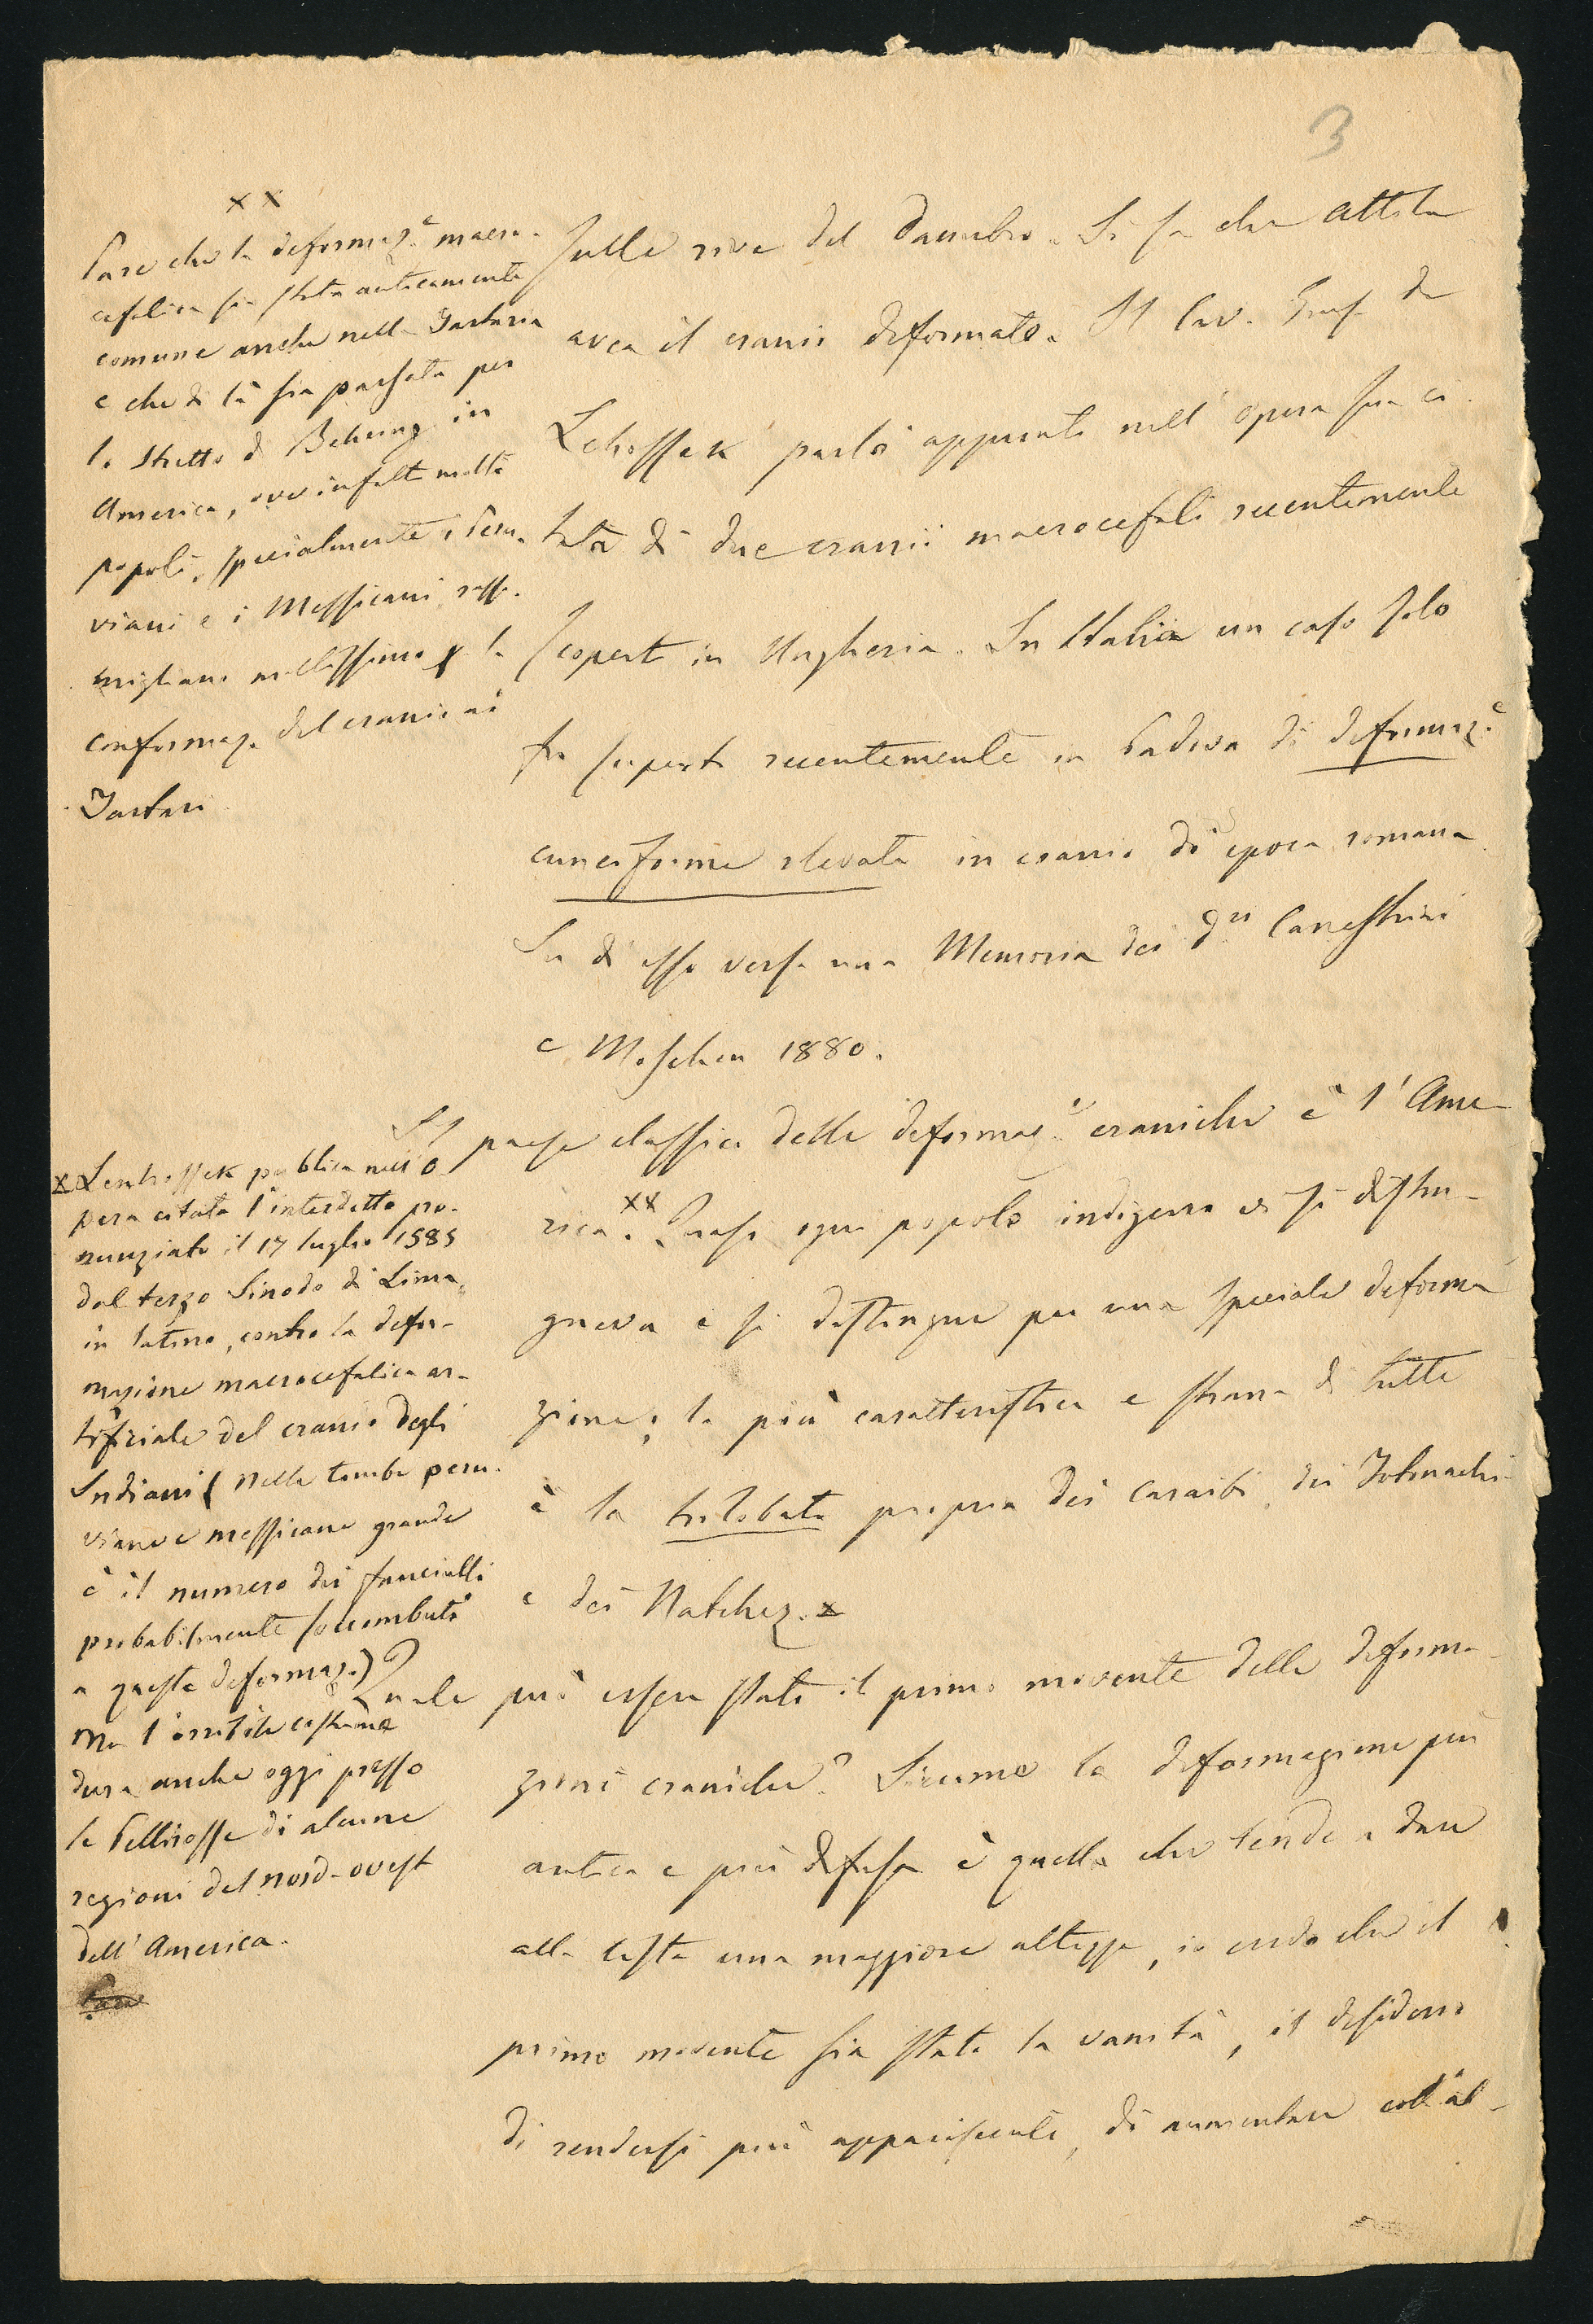 3
sulle rive del Danubio. Si sa che Attila
avea il cranio deformato. Il Cav. Prof. de
Lehossek parlò appunto nell'opera sua ci
tata di due cranii macrocefali recentemente
scoperti in Ungheria. In Italia un caso solo
fu scoperto recentemente in Padova di deformaz.e
cuneiforme elevata in cranio di epoca romana
Su di esso versa una Memoria dei Dri Canestrini
e Moschen 1880.
Il paese classico delle deformaz.i craniche è l'Ame-
rica.xx Quasi ogni popolo indigeno vi si distin-
gueva e si distingue per una speciale deforma
zione; la più caratteristica e strana di tutte
è la trilobata propria dei Caraibi, dei Totonachi
e dei Natchez. x
Quale può essere stato il primo movente delle deforma-
zioni craniche? Siccome la deformazione più
antica e più diffusa è quella che tende a dare
alla testa una maggiore altezza, io credo che il
primo movente sia stato la vanità, il desiderio
di rendersi più appariscente, di aumentare coll'al-
xx
Pare che la deformaz.e macro-
cefalica sia stata anticamente
comune anche nella Tartaria
e che di là sia passata per
lo stretto di Behring in
America, ove infatti molti
popoli, specialmente i Peru-
viani e i Messicani rasso-
migliano moltissimo per la
conformaz. del cranio ai
Tartari
x Lenhossek pubblica nell'o-
pera citata l'interdetto pro-
nunziato il 17 luglio 1585
dal terzo Sinodo di Lima,
in latino, contro la defor-
mazione macrocefalica ar-
tificiale del cranio degli
Indiani (nelle tombe peru-
viane e messicane grande
è il numero dei fanciulli
probabilmente soccombuti
a questa deformaz.)
Ma l'orribile costume
dura anche oggi presso
le Pellirosse di alcune
regioni del nord-ovest
dell'America.
Pare